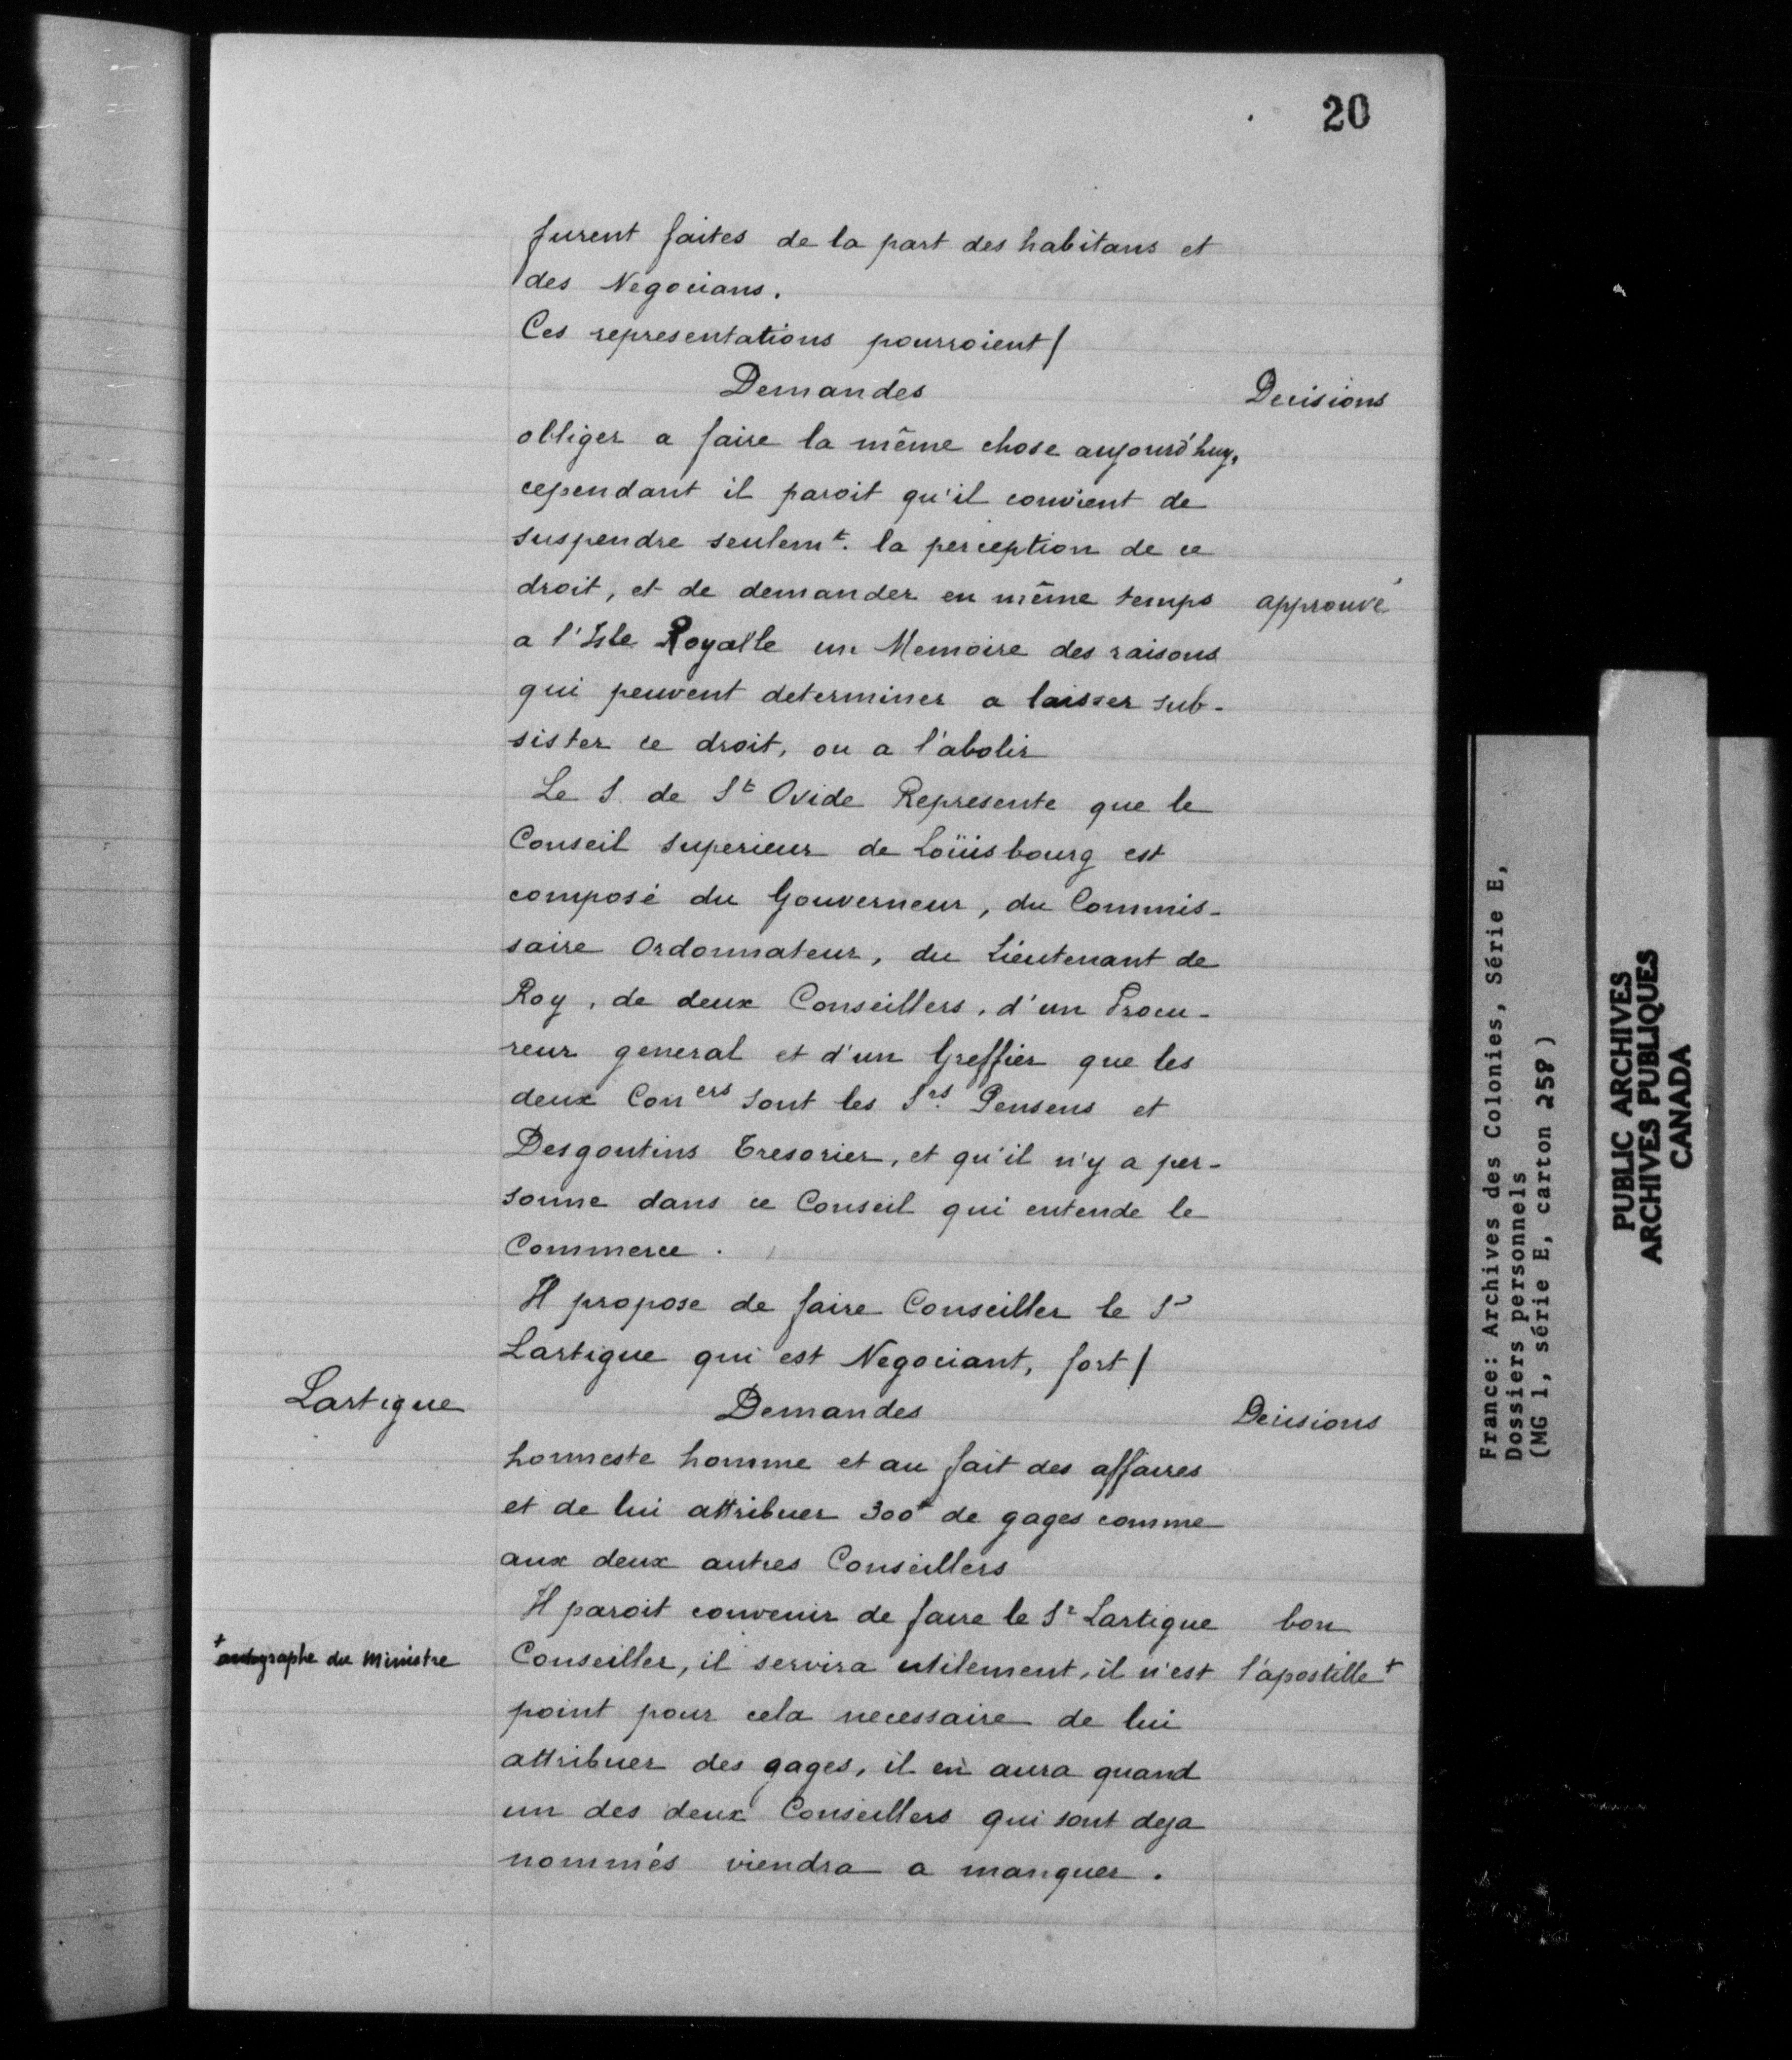 20
furent faites de la part des habitans et
des Negocians.
Ces representations pourroient/
Demandes Decisions
obliger a faire la même chose aujourd'huy,
cependant il paroit qu'il convient de
suspendre seulemt. la perception de ce
droit, et de demander en même temps approuvé
a l'Isle Royalle un Memoire des raisons
qui peuvent determiner a laisser sub-
sister ce droit, ou a l'abolir
Le S. de St Ovide Represente que le
Conseil superieur de Loüisbourg est
composé du Gouverneur, du Commis-
saire Ordonnateur, du Lieutenant de
Roy, de deux Conseillers, d'un Procu-
reur general et d'un Greffier que les
deux Coners sont les Srs. Pensens et
Desgoutins Tresorier, et qu'il n'y a per-
sonne dans ce Conseil qui entende le
Commerce.
Il propose de faire Conseiller le Sr
Lartigue qui est Negociant, fort/
Lartigue Demandes Decisions
honneste homme et au fait des affaires
et de lui attribuer 300# de gages comme
aux deux autres Conseillers
Il paroit convenir de faire le Sr Lartigue bon
+ autographe du Ministre Conseiller, il servira utilement, il n'est l'apostille+
point pour cela necessaire de lui
attribuer des gages, il en aura quand
un des deux Conseillers qui sont deja
nommés viendra a manquer.
France: Archives des Colonies, Série E,
Dossiers personnels
(MG 1, série E, carton 258)
PUBLIC ARCHIVES
ARCHIVES PUBLIQUES
CANADA